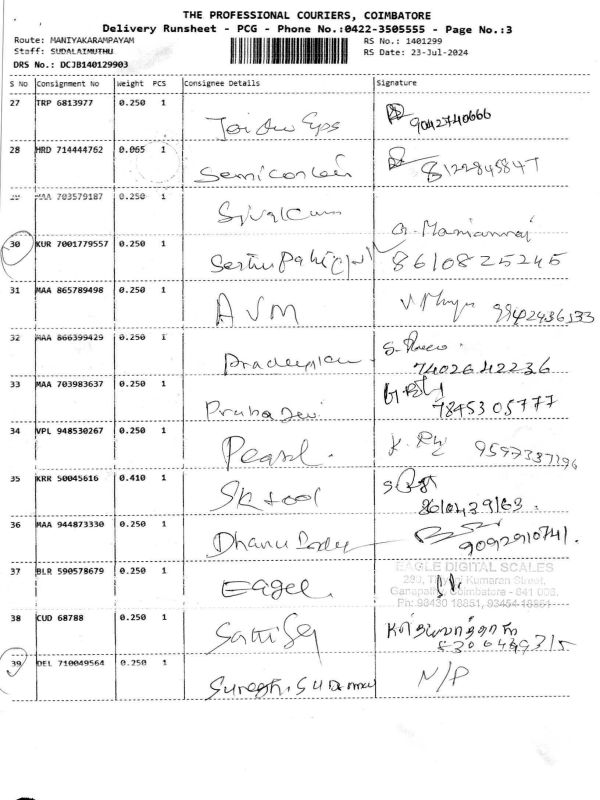 THE PROFESSIONAL COURIERS, COIMBATORE
Delivery Runsheet - PCG - Phone No.:0422-3505555 - Page No.:3
Route: MANIYAKARAMPAYAM
RS No.: 1401299
Staff: SUDALAIMUTHU
RS Date: 23-Jul-2024
DRS No.: DCJB140129903
S No Consignment No Weight PCS Consignee Details Signature
27 TRP 6813977 0.250 1
9042740666
28 HRD 714444762 0.065 1
8122845847
29 MAA 703579187 0.250 1
30 KUR 7001779557 0.250 1
8610825245
31 MAA 865789498 0.250 1
AVM
32 MAA 866399429 0.250 1
7402642236
33 MAA 703983637 0.250 1
Praba Devi
7845305777
34 VPL 948530267 0.250 1
Pearl.
9597337196
35 KRR 50045616 0.410 1
SK tool
36 MAA 944873330 0.250 1
Dhanu
9092910741.
37 BLR 590578679 0.250 1
Eagel.
EAGLE DIGITAL SCALES
Kumaran Street,
Ganapathy, Coimbatore - 641 006.
Ph: 98430 18851, 93454 18851
38 CUD 68788 0.250 1
39 DEL 710049564 0.250 1
Suresh
N/P